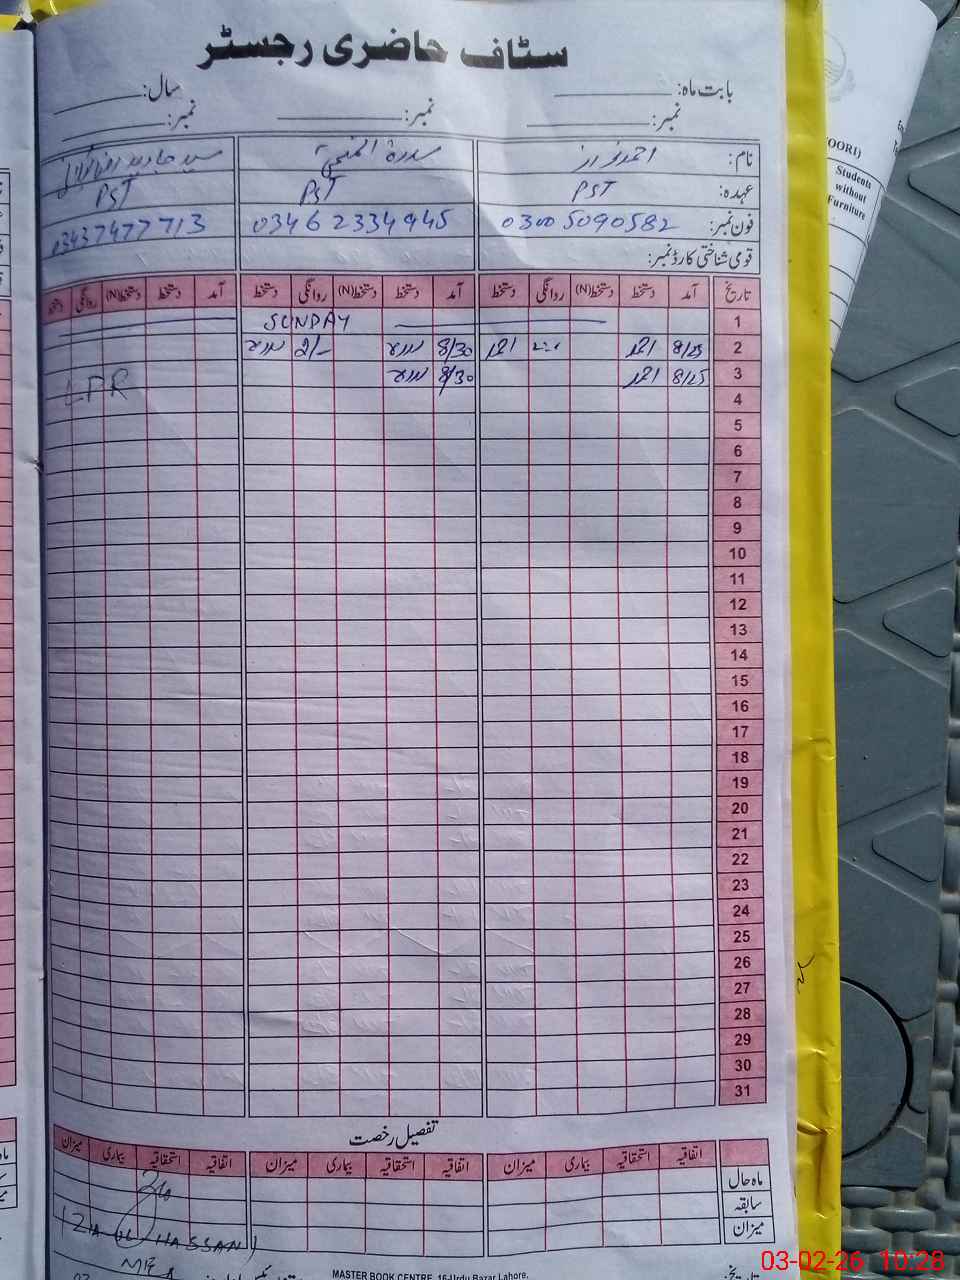 سٹاف حاضری رجسٹر
بابت ماہ: سال:
نمبر: نمبر: نمبر:
نام: احمد نواز سدرة المنتهیٰ سید جاوید
عہدہ: PST PST PST
فون نمبر: 03005090582 03462334945 03437477713
قومی شناختی کارڈ نمبر:
تاریخ آمد دستخط دستخط(N) روانگی دستخط آمد دستخط دستخط(N) روانگی دستخط آمد دستخط دستخط(N) روانگی دستخط
1 SUNDAY
2 8/25 احمد احمد 8/30 سدرہ 2/- سدرہ
3 8/25 احمد 8/30 سدرہ LPR
4
5
6
7
8
9
10
11
12
13
14
15
16
17
18
19
20
21
22
23
24
25
26
27
28
29
30
31
تفصیل رخصت
اتفاقیہ استحقاقیہ بیماری میزان اتفاقیہ استحقاقیہ بیماری میزان اتفاقیہ استحقاقیہ بیماری میزان
ماہ حال
سابقہ
میزان
(ZIA UL HASSAN)
MEA
MASTER BOOK CENTRE, 16-Urdu Bazar Lahore.
OORI)
Students
without
Furniture
03-02-26 10:28